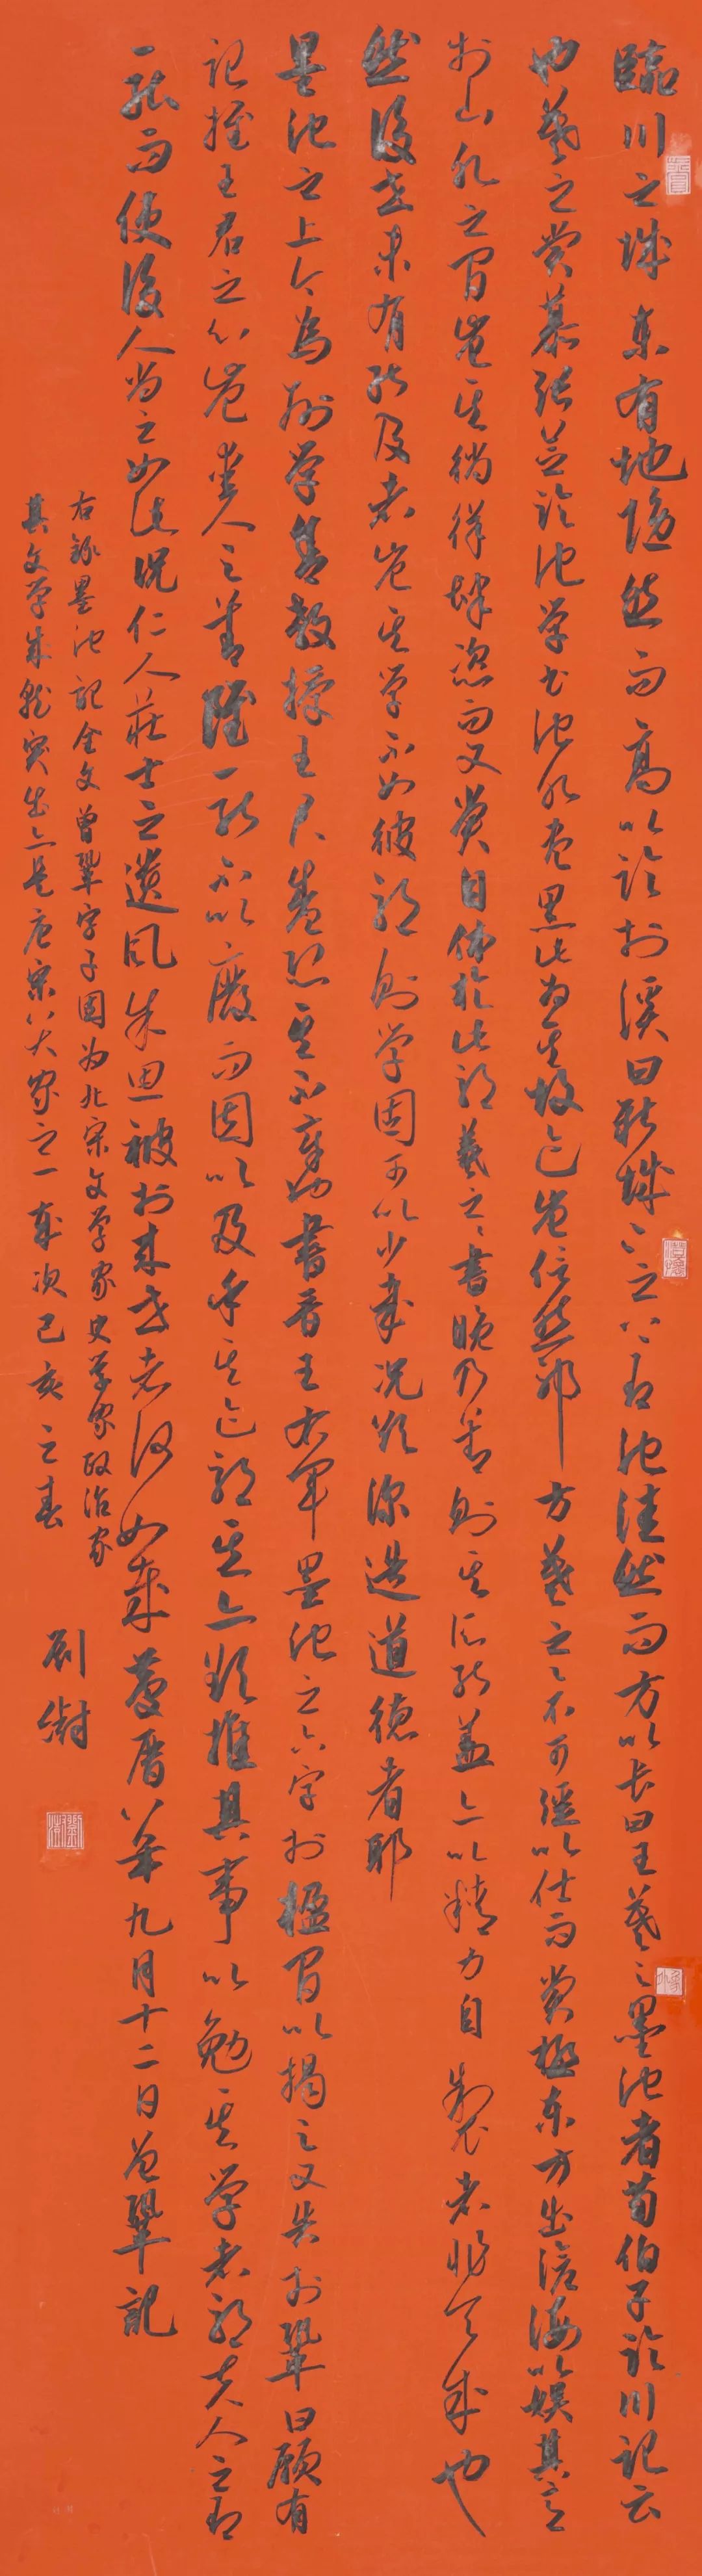 臨川之城東有地隱然而高以臨於溪曰新城〻之上有池洼然而方以長曰王羲之墨池者荀伯子臨川記云
也羲之嘗慕張芝臨池學書池水盡黑此為其故迹豈信然邪方羲之〻不可強以仕而嘗極東方出滄海以娛其意
於山水之間豈其徜徉肆恣而又嘗自休於此邪羲之〻書晚乃善則其所能蓋亦以精力自製者非天成也
然後世未有能及者豈其學不如彼邪則學固可以少哉況欲深造道德者耶
墨池之上今為州學舍教授王君盛恐其不章也書晉王右軍墨池之六字於楹間以揭之又告於鞏曰願有
記推王君之心豈愛人之善雖一能不以廢而因以及乎其迹邪其亦欲推其事以勉其學者邪夫人之有
一能而使後人尚之如此況仁人莊士之遺風餘思被於來世者何如哉慶曆八年九月十二日曾鞏記
右錄墨池記全文曾鞏字子固為北宋文學家史學家政治家
其文學成就突出亦是唐宋八大家之一歲次己亥之春
劉澍